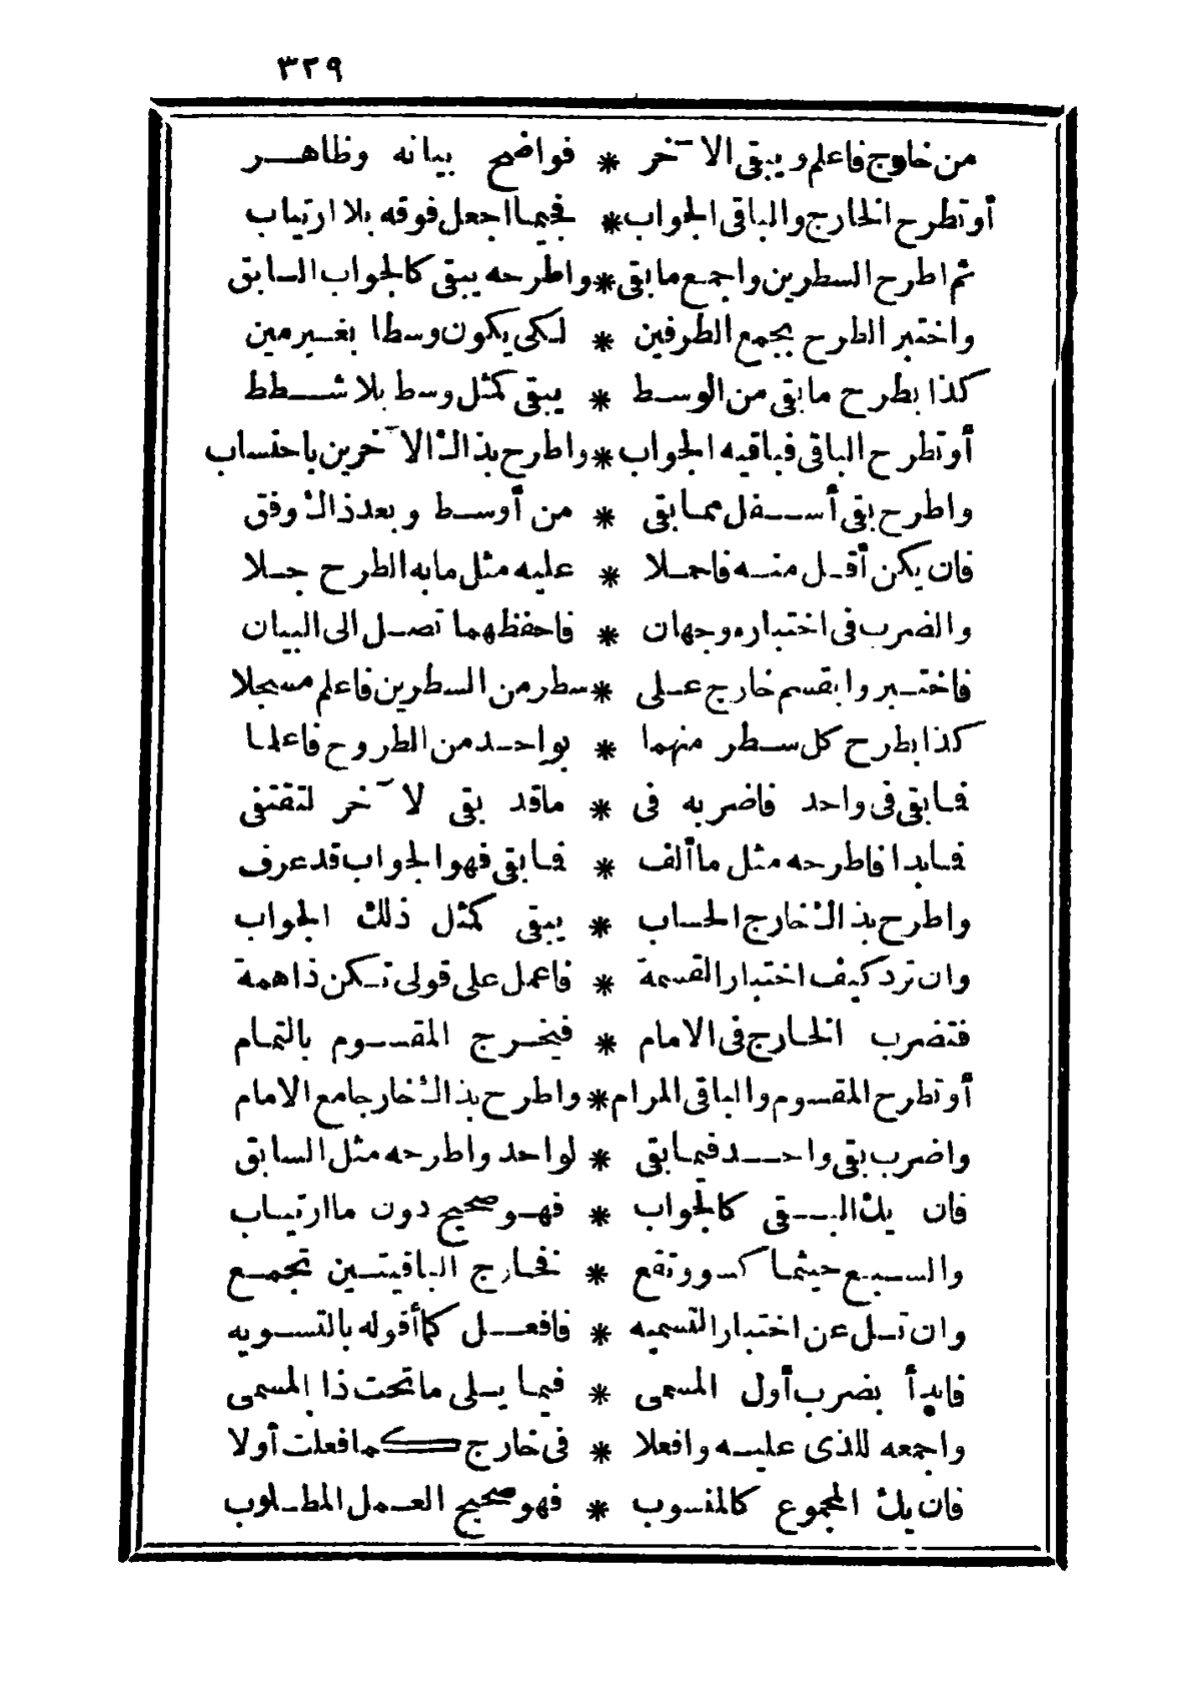 ٣٢٩
من خارج فاعلم ويبقى الآخر * فواضح بيانه وظاهر
أو تطرح الخارج والباقى الجواب * فجيما اجعل فوقه بلا ارتياب
ثم اطرح السطرين واجمع ما بقى * واطرحه يبقى كالجواب السابق
واختبر الطرح بجمع الطرفين * لكى يكون وسطا بغير مين
كذا بطرح ما بقى من الوسط * يبقى كمثل وسط بلا شطط
أو تطرح الباقى فباقيه الجواب * واطرح بذاك الآخرين باحتساب
واطرح بقى أسفل مما بقى * من أوسط وبعد ذاك وفق
فان يكن أقل منه فاحملا * عليه مثل ما به الطرح جلا
والضرب فى اختباره وجهان * فاحفظهما تصل الى البيان
فاختبروا بقسم خارج على * سطر من السطرين فاعلم مسجلا
كذا بطرح كل سطر منهما * بواحد من الطروح فاعلما
فما بقى فى واحد فاضربه فى * ما قد بقى لآخر لتقتفى
فما بدا فاطرحه مثل ما ألف * فما بقى فهو الجواب قد عرف
واطرح بذاك خارج الحساب * يبقى كمثل ذلك الجواب
وان ترد كيف اختبار القسمة * فاعمل على قولى تكن ذا همة
فتضرب الخارج فى الامام * فيخرج المقسوم بالتمام
أو تطرح المقسوم والباقى المرام * واطرح بذاك خارجا مع الامام
واضرب بقى واحد فيما بقى * لواحد واطرحه مثل السابق
فان يك البقى كالجواب * فهو صحيح دون ما ارتياب
والسبع حيثما كسور تقع * فخارج الباقيتين تجمع
وان تسل عن اختبار التسميه * فافعل كما أقوله بالتسويه
فابدأ بضرب أول المسمى * فيما يلى ما تحت ذا المسمى
واجمعه للذى عليه وافعلا * فى خارج كما فعلت أولا
فان يك المجموع كالمنسوب * فهو صحيح العمل المطلوب